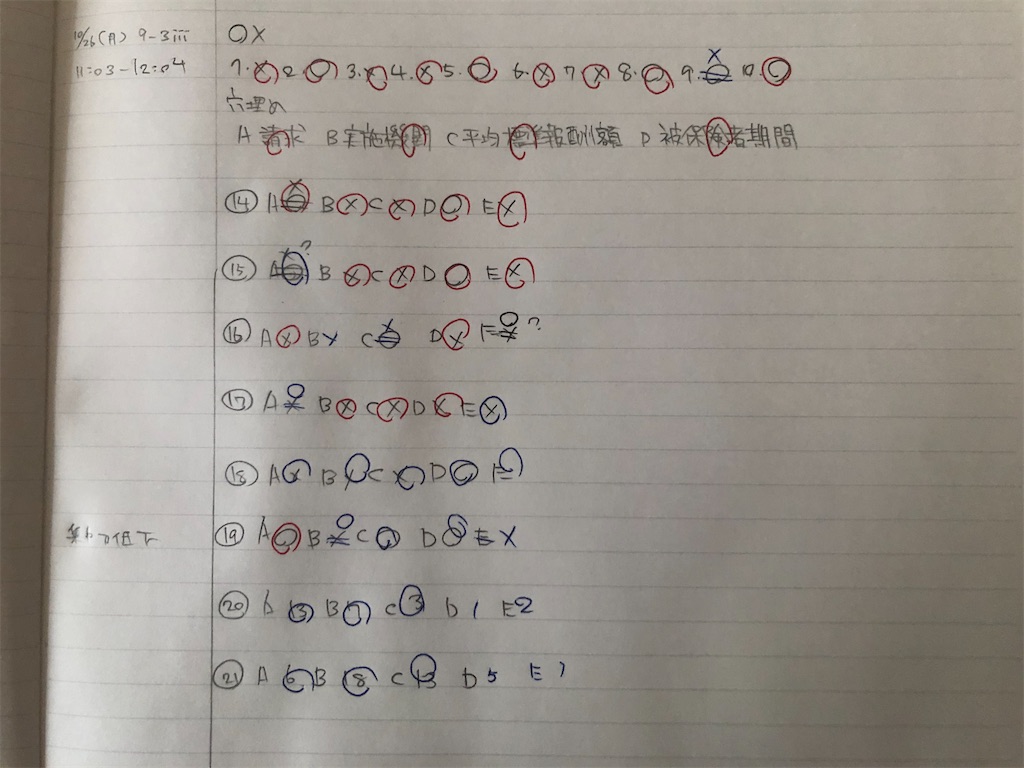 10/26(月) 9-3iii
○×
11:03-12:04
1.× 2.○ 3.× 4.× 5.○ 6.× 7.× 8.○ 9.× 10.○
穴埋め
A 請求 B 実施機関 C 平均標準報酬額 D 被保険者期間
⑭ A× B× C× D○ E×
⑮ A ? B× C× D○ E×
⑯ A× B× C× D× E○?
⑰ A○ B× C× D× E×
⑱ A× B C× D○ E
⑲ A○ B○ C D E×
⑳ B C3 D1 E2
㉑ A B8 C D5 E